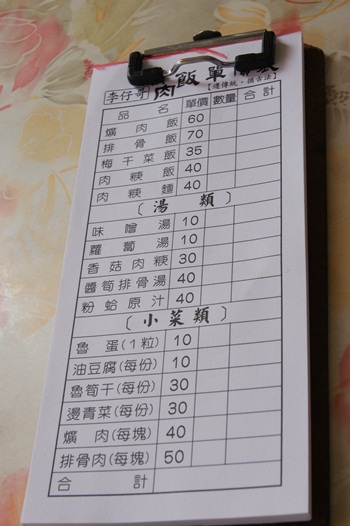 李仔哥 肉飯單
【遵傳統‧循古法】
品名 單價 數量 合計
爌肉飯 60
排骨飯 70
梅干菜飯 35
肉粳飯 40
肉粳麵 40
〔湯類〕
味噌湯 10
蘿蔔湯 10
香菇肉粳 30
醬筍排骨湯 40
粉蛤原汁 40
〔小菜類〕
魯蛋(1粒) 10
油豆腐(每份) 10
魯筍干(每份) 30
燙青菜(每份) 30
爌肉(每塊) 40
排骨肉(每塊) 50
合計